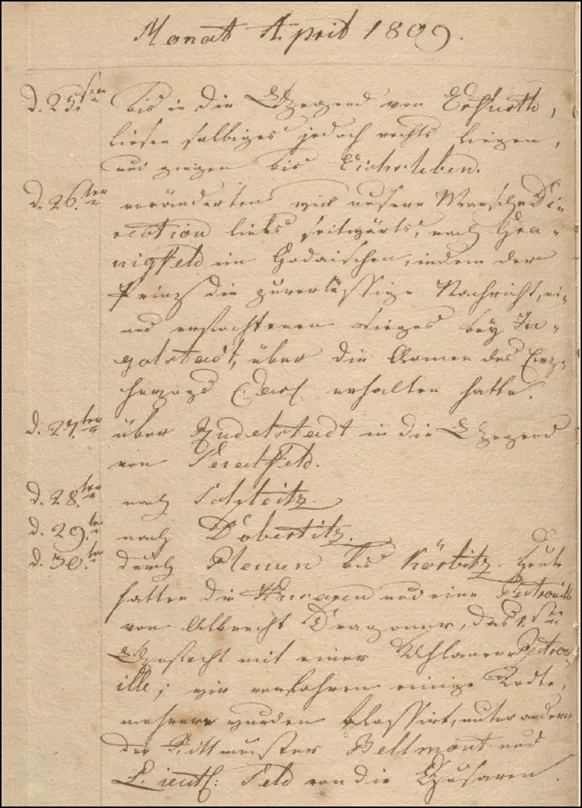 Monat April 1809.
d. 25sten bis in die Gegend von Erfurth,
liesen selbiges jedoch rechts liegen,
und gingen bis Eichsleben.
d. 26.ten veränderten wir unsere Marsch Di-
rection links seitwärts, nach Gra-
nigfeld im Gothaischen, indem der
Prinz die zuverlässige Nachricht, ei-
nes erfochtenen Sieges bey In-
golstadt, über die Armee des Erz-
herzogs Carl erhalten hatte.
d. 27ten über Rudelstadt in die Gegend
von
d. 28.ten nach Schleitz.
d. 29.ten nach Dobertitz.
d. 30.ten durch Plauen bis Körbitz. Heute
hatten die Husaren und eine Patrouille
von Albrecht Dragoner, das 1ste
Gefecht mit einer Uhlanen Patrou-
ille; wir verlohren einige Todte,
mehrere wurden blessirt, unter andern
der Rittmeister Bellmont und
Lieut: Feld von die Husaren.